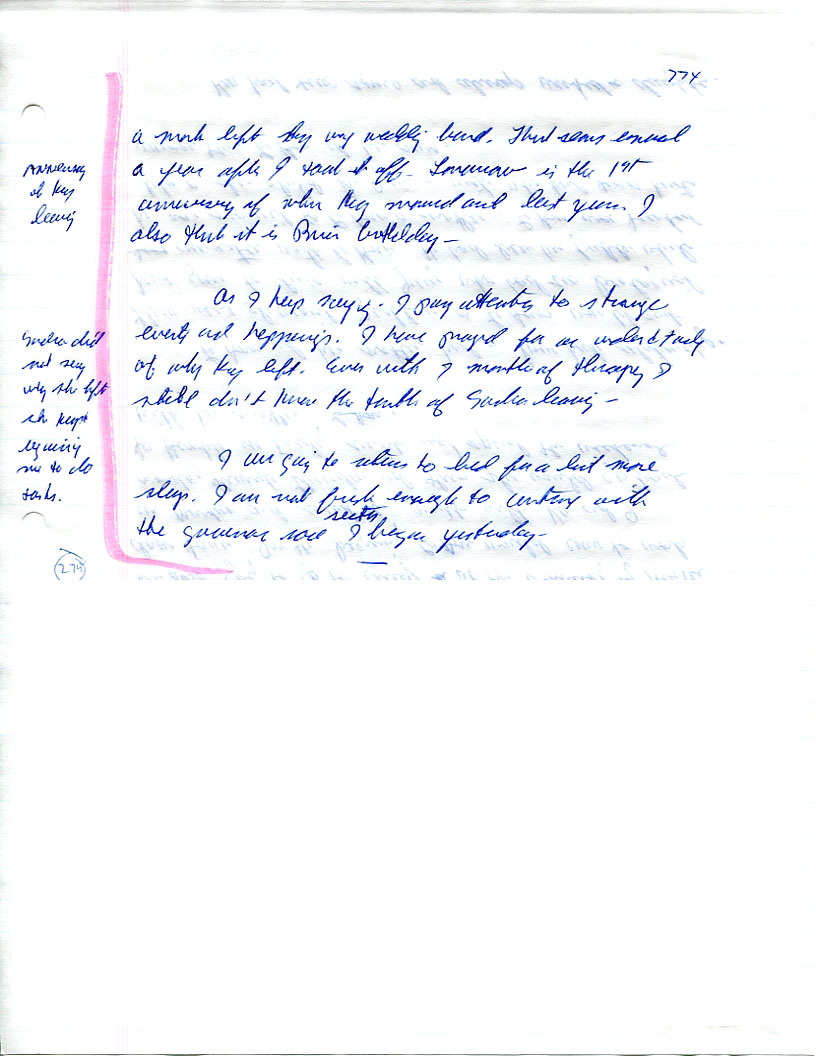 774
a mark left by my wedding band. That seems
a year after I took it off. Tomorrow is the 1st
anniversary of when they moved out last year. I
also think it is birthday —
Anniversary
of they
leaving
As I keep saying. I pay attention to strange
events and happenings. I have prayed for an understanding
of why they left. Even with months of therapy I
still don't know the truth of leaving —
did
not say
why she left
she kept
me to do
tasks.
I am going to return to bed for a bit more
sleep. I am not fresh enough to continue with
the I began yesterday —
274